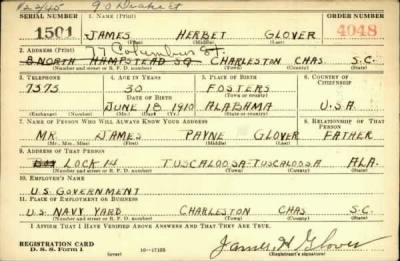 12/2/45 90 Drake St
SERIAL NUMBER 1. NAME (Print) ORDER NUMBER
1501 JAMES HERBET GLOVER 4048
(First) (Middle) (Last)
2. ADDRESS (Print) 77 Columbus St.
8 NORTH HAMPSTEAD SQ CHARLESTON CHAS S.C.
(Number and street or R. F. D. number) (Town) (County) (State)
3. TELEPHONE 4. AGE IN YEARS 5. PLACE OF BIRTH 6. COUNTRY OF CITIZENSHIP
7575 30 FOSTERS
DATE OF BIRTH (Town or county)
JUNE 18 1910 ALABAMA U.S.A.
(Exchange) (Number) (Mo.) (Day) (Yr.) (State or country)
7. NAME OF PERSON WHO WILL ALWAYS KNOW YOUR ADDRESS 8. RELATIONSHIP OF THAT PERSON
MR. JAMES PAYNE GLOVER FATHER
(Mr., Mrs., Miss) (First) (Middle) (Last)
9. ADDRESS OF THAT PERSON
LOCK 14 TUSCALOOSA-TUSCALOOSA ALA.
(Number and street or R. F. D. number) (Town) (County) (State)
10. EMPLOYER'S NAME
U.S GOVERNMENT
11. PLACE OF EMPLOYMENT OR BUSINESS
U.S. NAVY YARD CHARLESTON CHAS S.C.
(Number and street or R. F. D. number) (Town) (County) (State)
I AFFIRM THAT I HAVE VERIFIED ABOVE ANSWERS AND THAT THEY ARE TRUE.
REGISTRATION CARD James H Glover
D. S. S. Form 1 (over) 16—17105 (Registrant's signature)